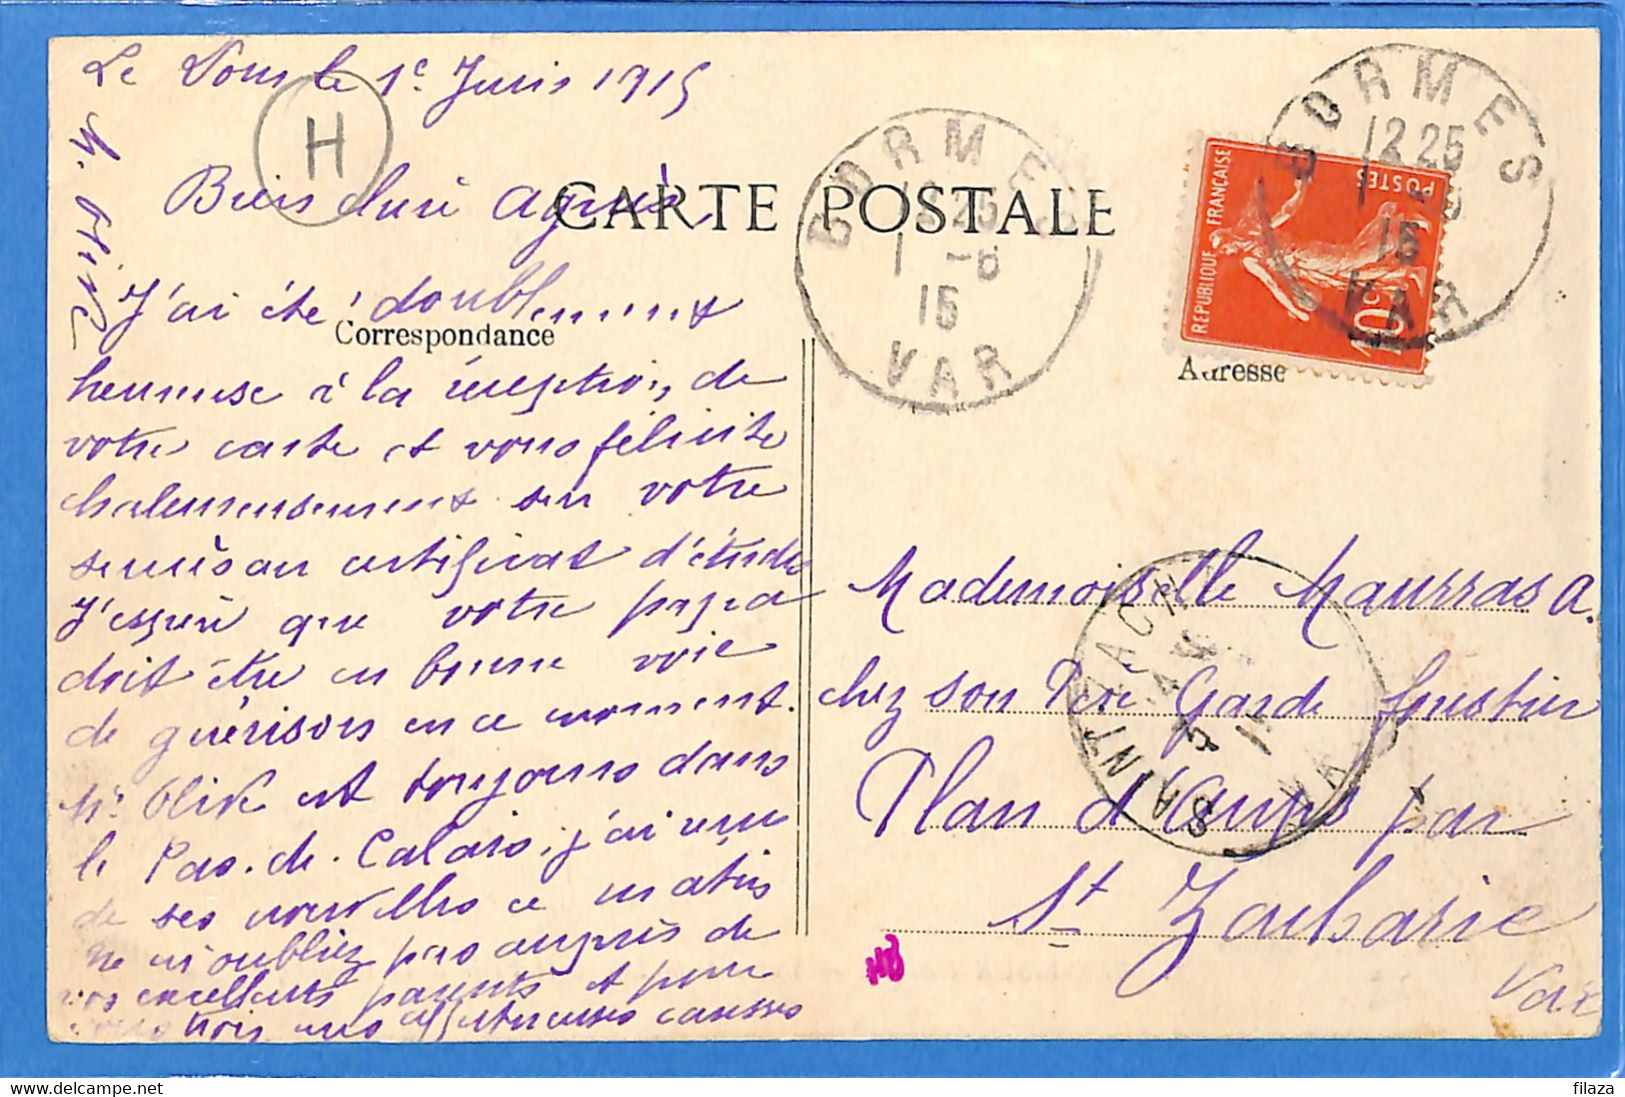 Le Dom le 1e Juin 1915
H
Bien chère Agnès,
CARTE POSTALE
J'ai été doublement
Correspondance
heureuse à la réception de
votre carte et vous félicite
chaleureusement sur votre
succès au certificat d'études
J'espère que votre papa
doit être en bonne voie
de guérison en ce moment.
Mr Olive est toujours dans
le Pas-de-Calais, j'ai reçu
de ses nouvelles ce matin
Ne m'oubliez pas auprès de
vos excellents parents et pour
vous trois mes affectueuses caresses
M. Olive
BORMES
12 25
1 -6
15
VAR
BORMES
12 25
15
VAR
REPUBLIQUE FRANÇAISE
POSTES
10c
Adresse
Mademoiselle Maurras A.
chez son Père Garde forestier
Plan d'Aups par
St Zacharie
Var
SAINT ZACHARIE
VAR
filaza